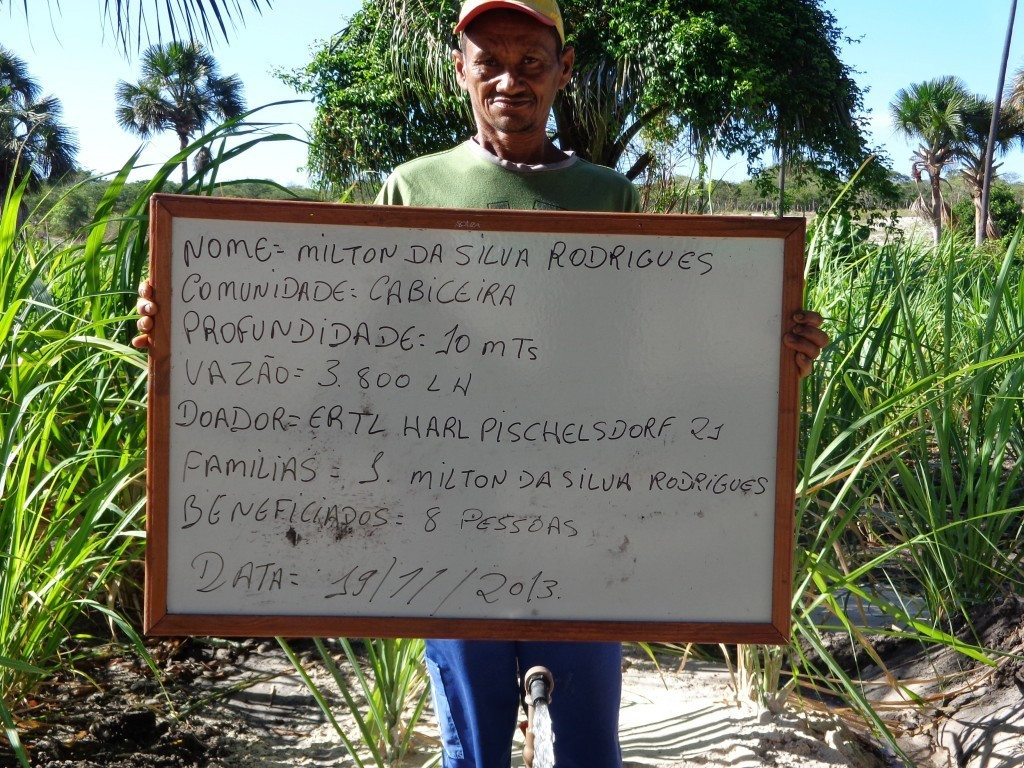 NOME= MILTON DA SILVA RODRIGUES
COMUNIDADE= CABICEIRA
PROFUNDIDADE= 10 MTS
VAZÃO= 3.800 LH
DOADOR= ERTL HARL PISCHELSDORF 21
FAMILIAS = 1. MILTON DA SILVA RODRIGUES
BENEFICIADOS= 8 PESSOAS
DATA= 19/11/2013.